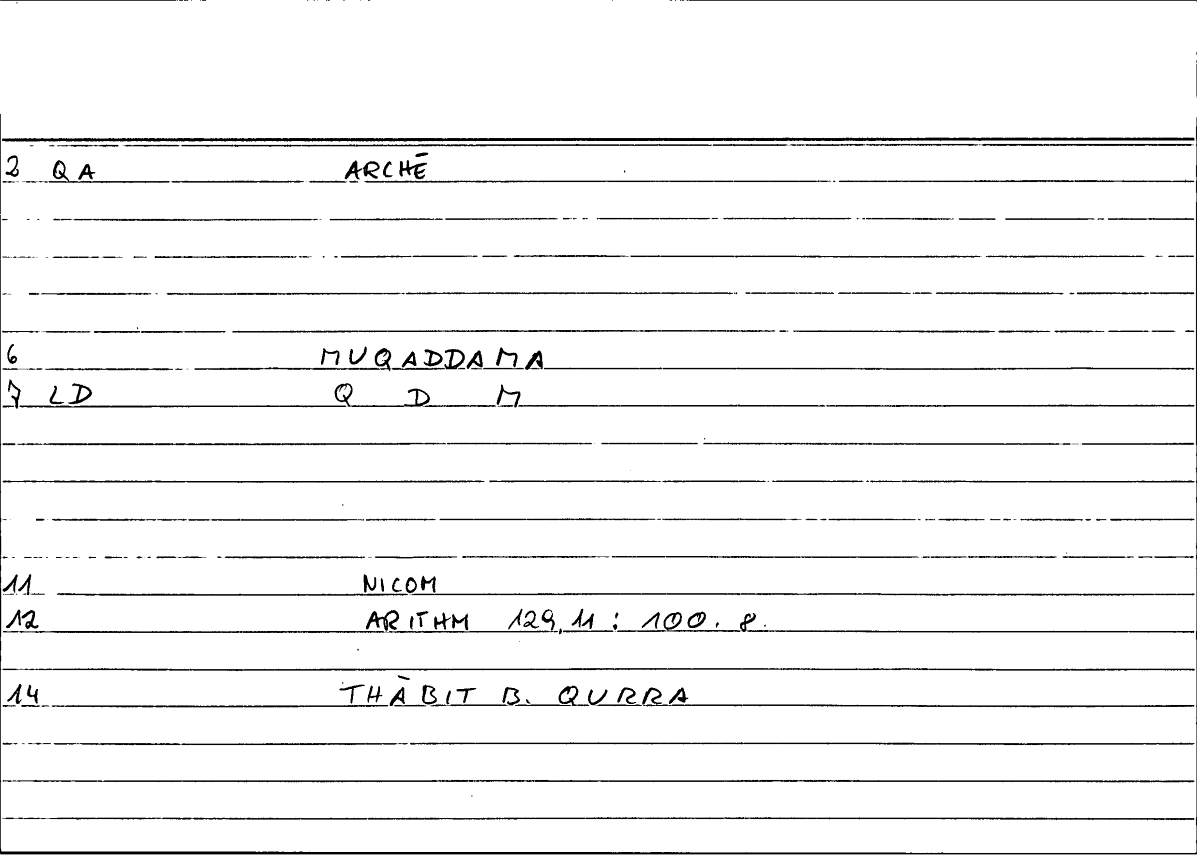 2 QA ARCHĒ
6 MUQADDAMA
7 LD Q D M
11 NICOM
12 ARITHM 129,11 : 100. 8.
14 THĀBIT B. QURRA